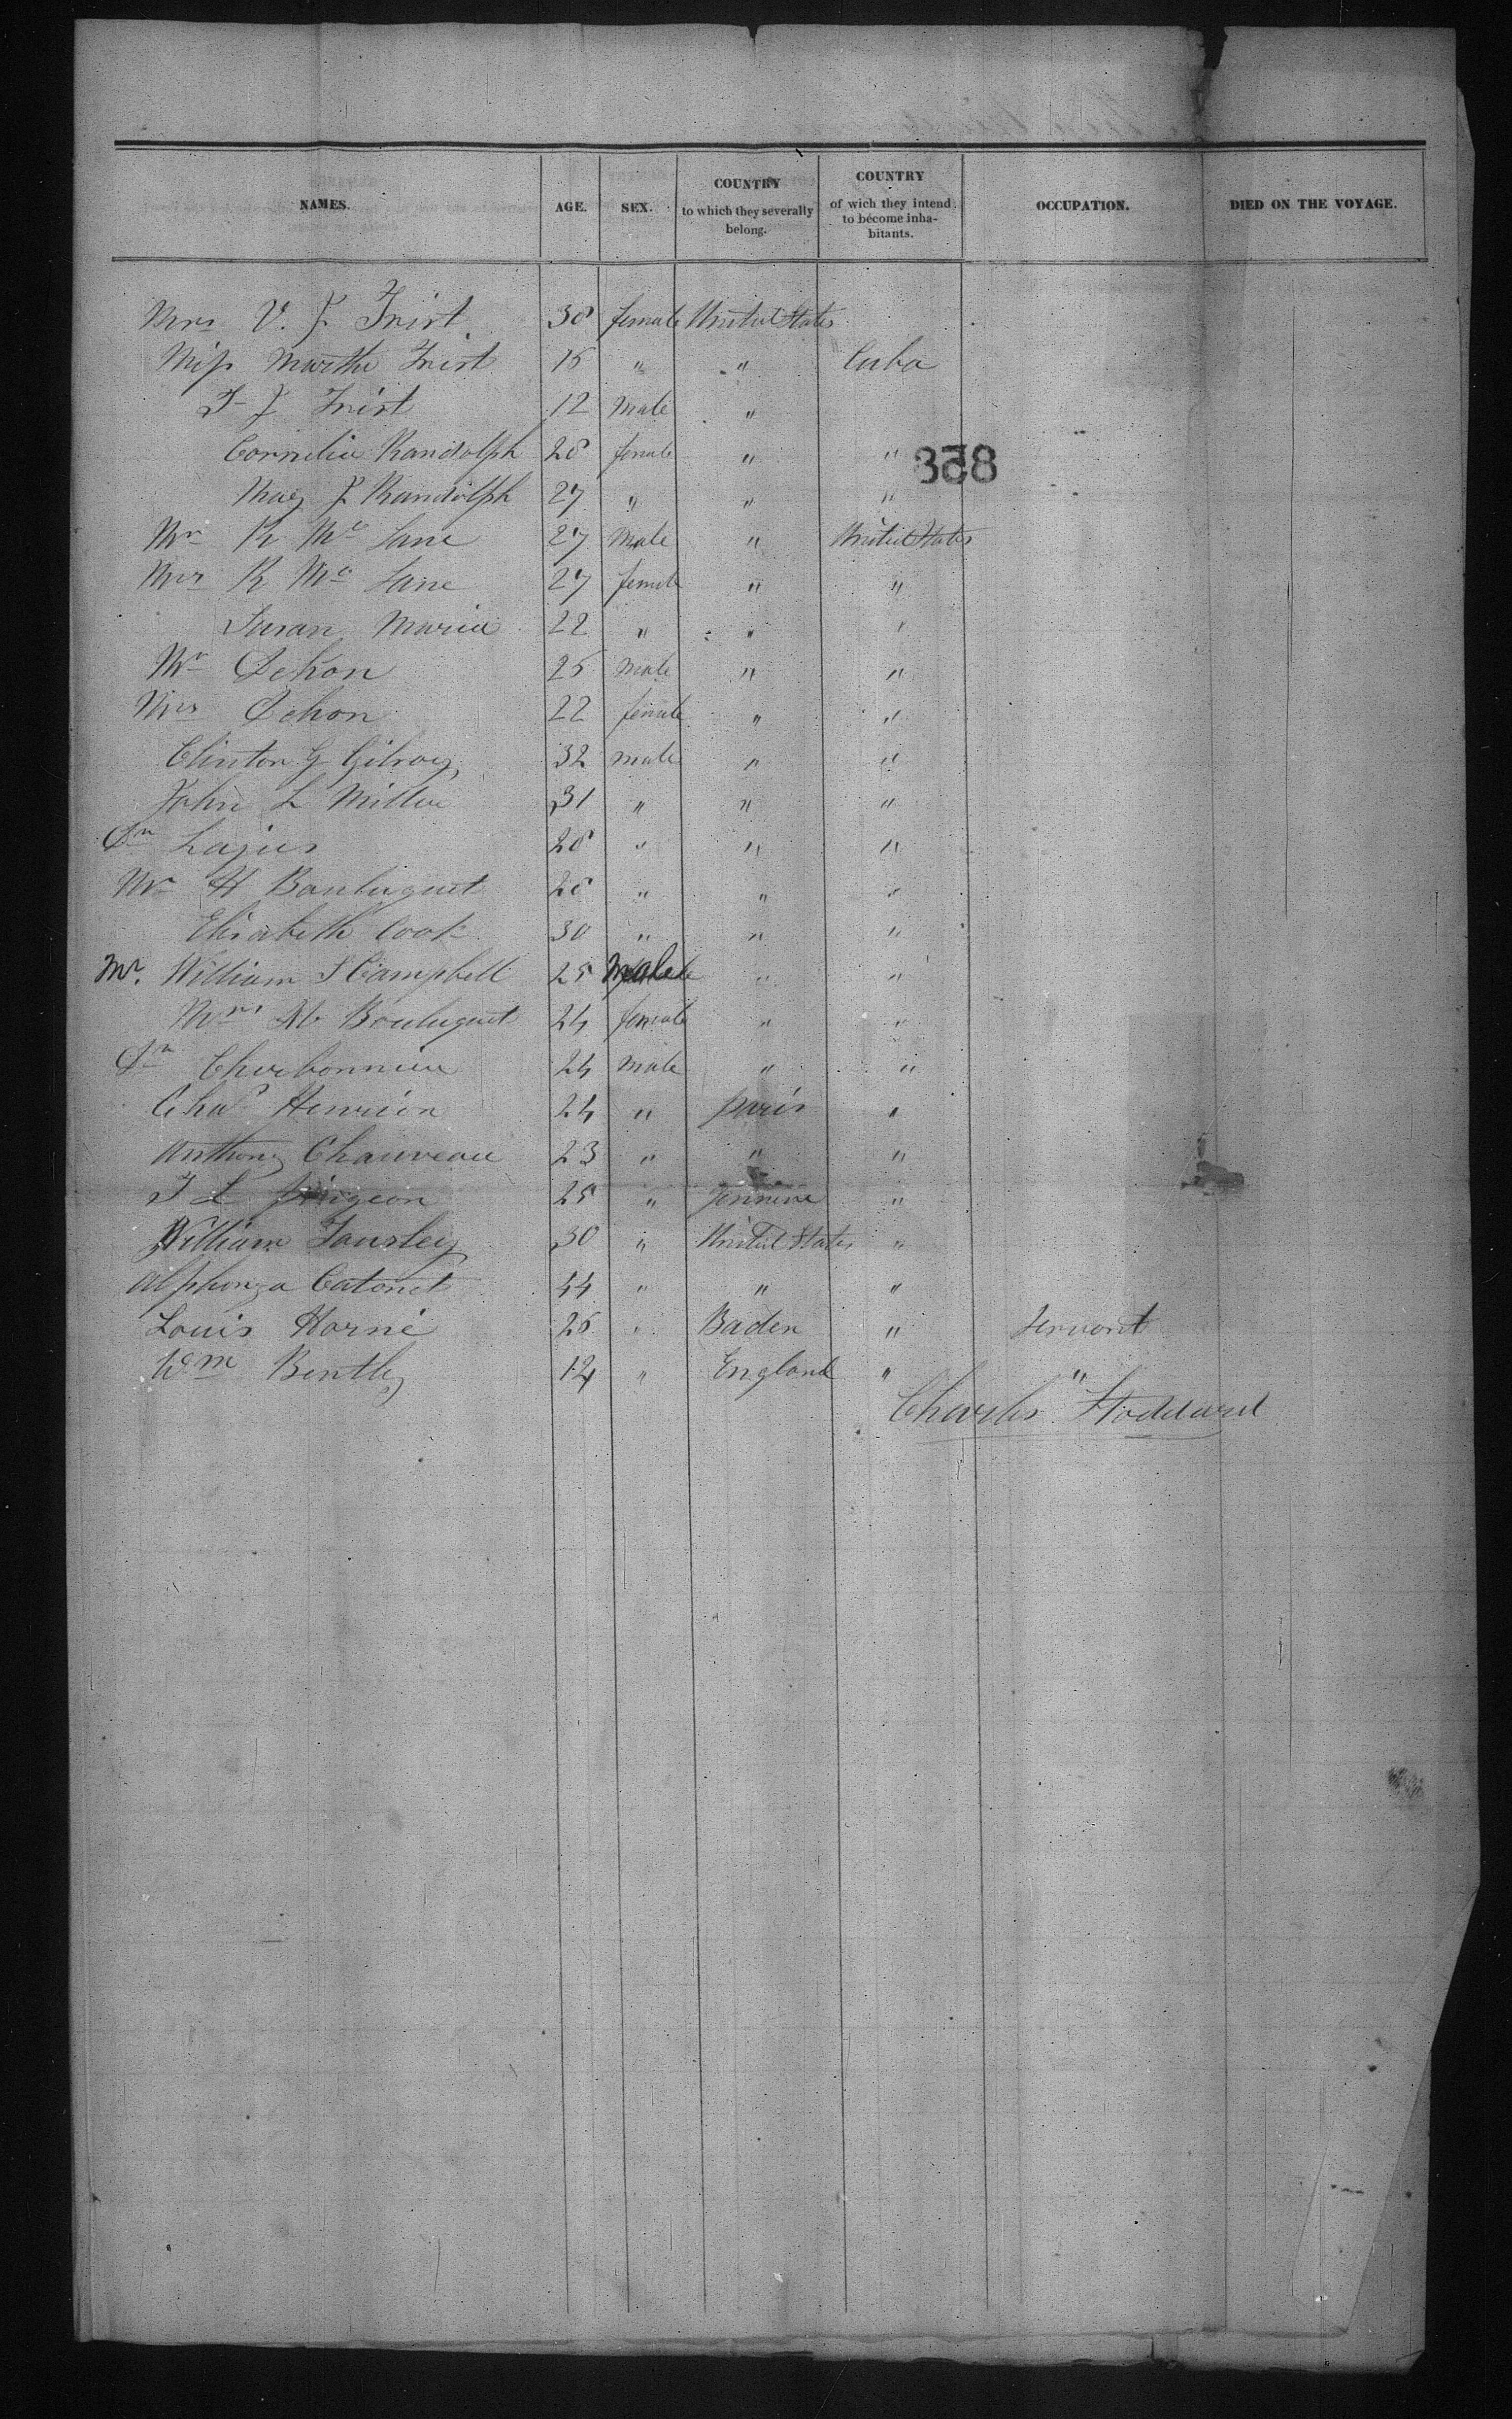 NAMES. AGE. SEX. COUNTRY to which they severally belong. COUNTRY of wich they intend to become inhabitants. OCCUPATION. DIED ON THE VOYAGE.
Mrs V. J. Trist 38 female United States
Miss Martha Trist 15 " " Cuba
T J Trist 12 Male "
Cornelia Randolph 28 female " "
858
Mary J Randolph 27 " " "
Mr R Mc Lane 27 Male " United States
Mrs R Mc Lane 27 female " "
Susan Maria 22 " " "
Mr Dehon 25 male " "
Mrs Dehon 22 female " "
Clinton G Gilroy 32 male " "
John L Miller 31 " " "
28 " " "
Mr H 28 " " "
Elisabeth Cook 30 " " "
Mr. William S Campbell 25 Male " "
Mrs 24 female " "
24 male " "
Chas Henrion 24 " paris "
Anthony Chauveau 23 " " "
25 " "
William Tousley 30 " United States "
Alphonza 44 " " "
Louis Horné 26 " Baden " Servant
Wm Bently 14 " England " "
Charles Stoddard